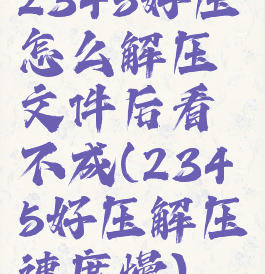 2345好压
怎么解压
文件后看
不成(234
5好压解压
速度慢)